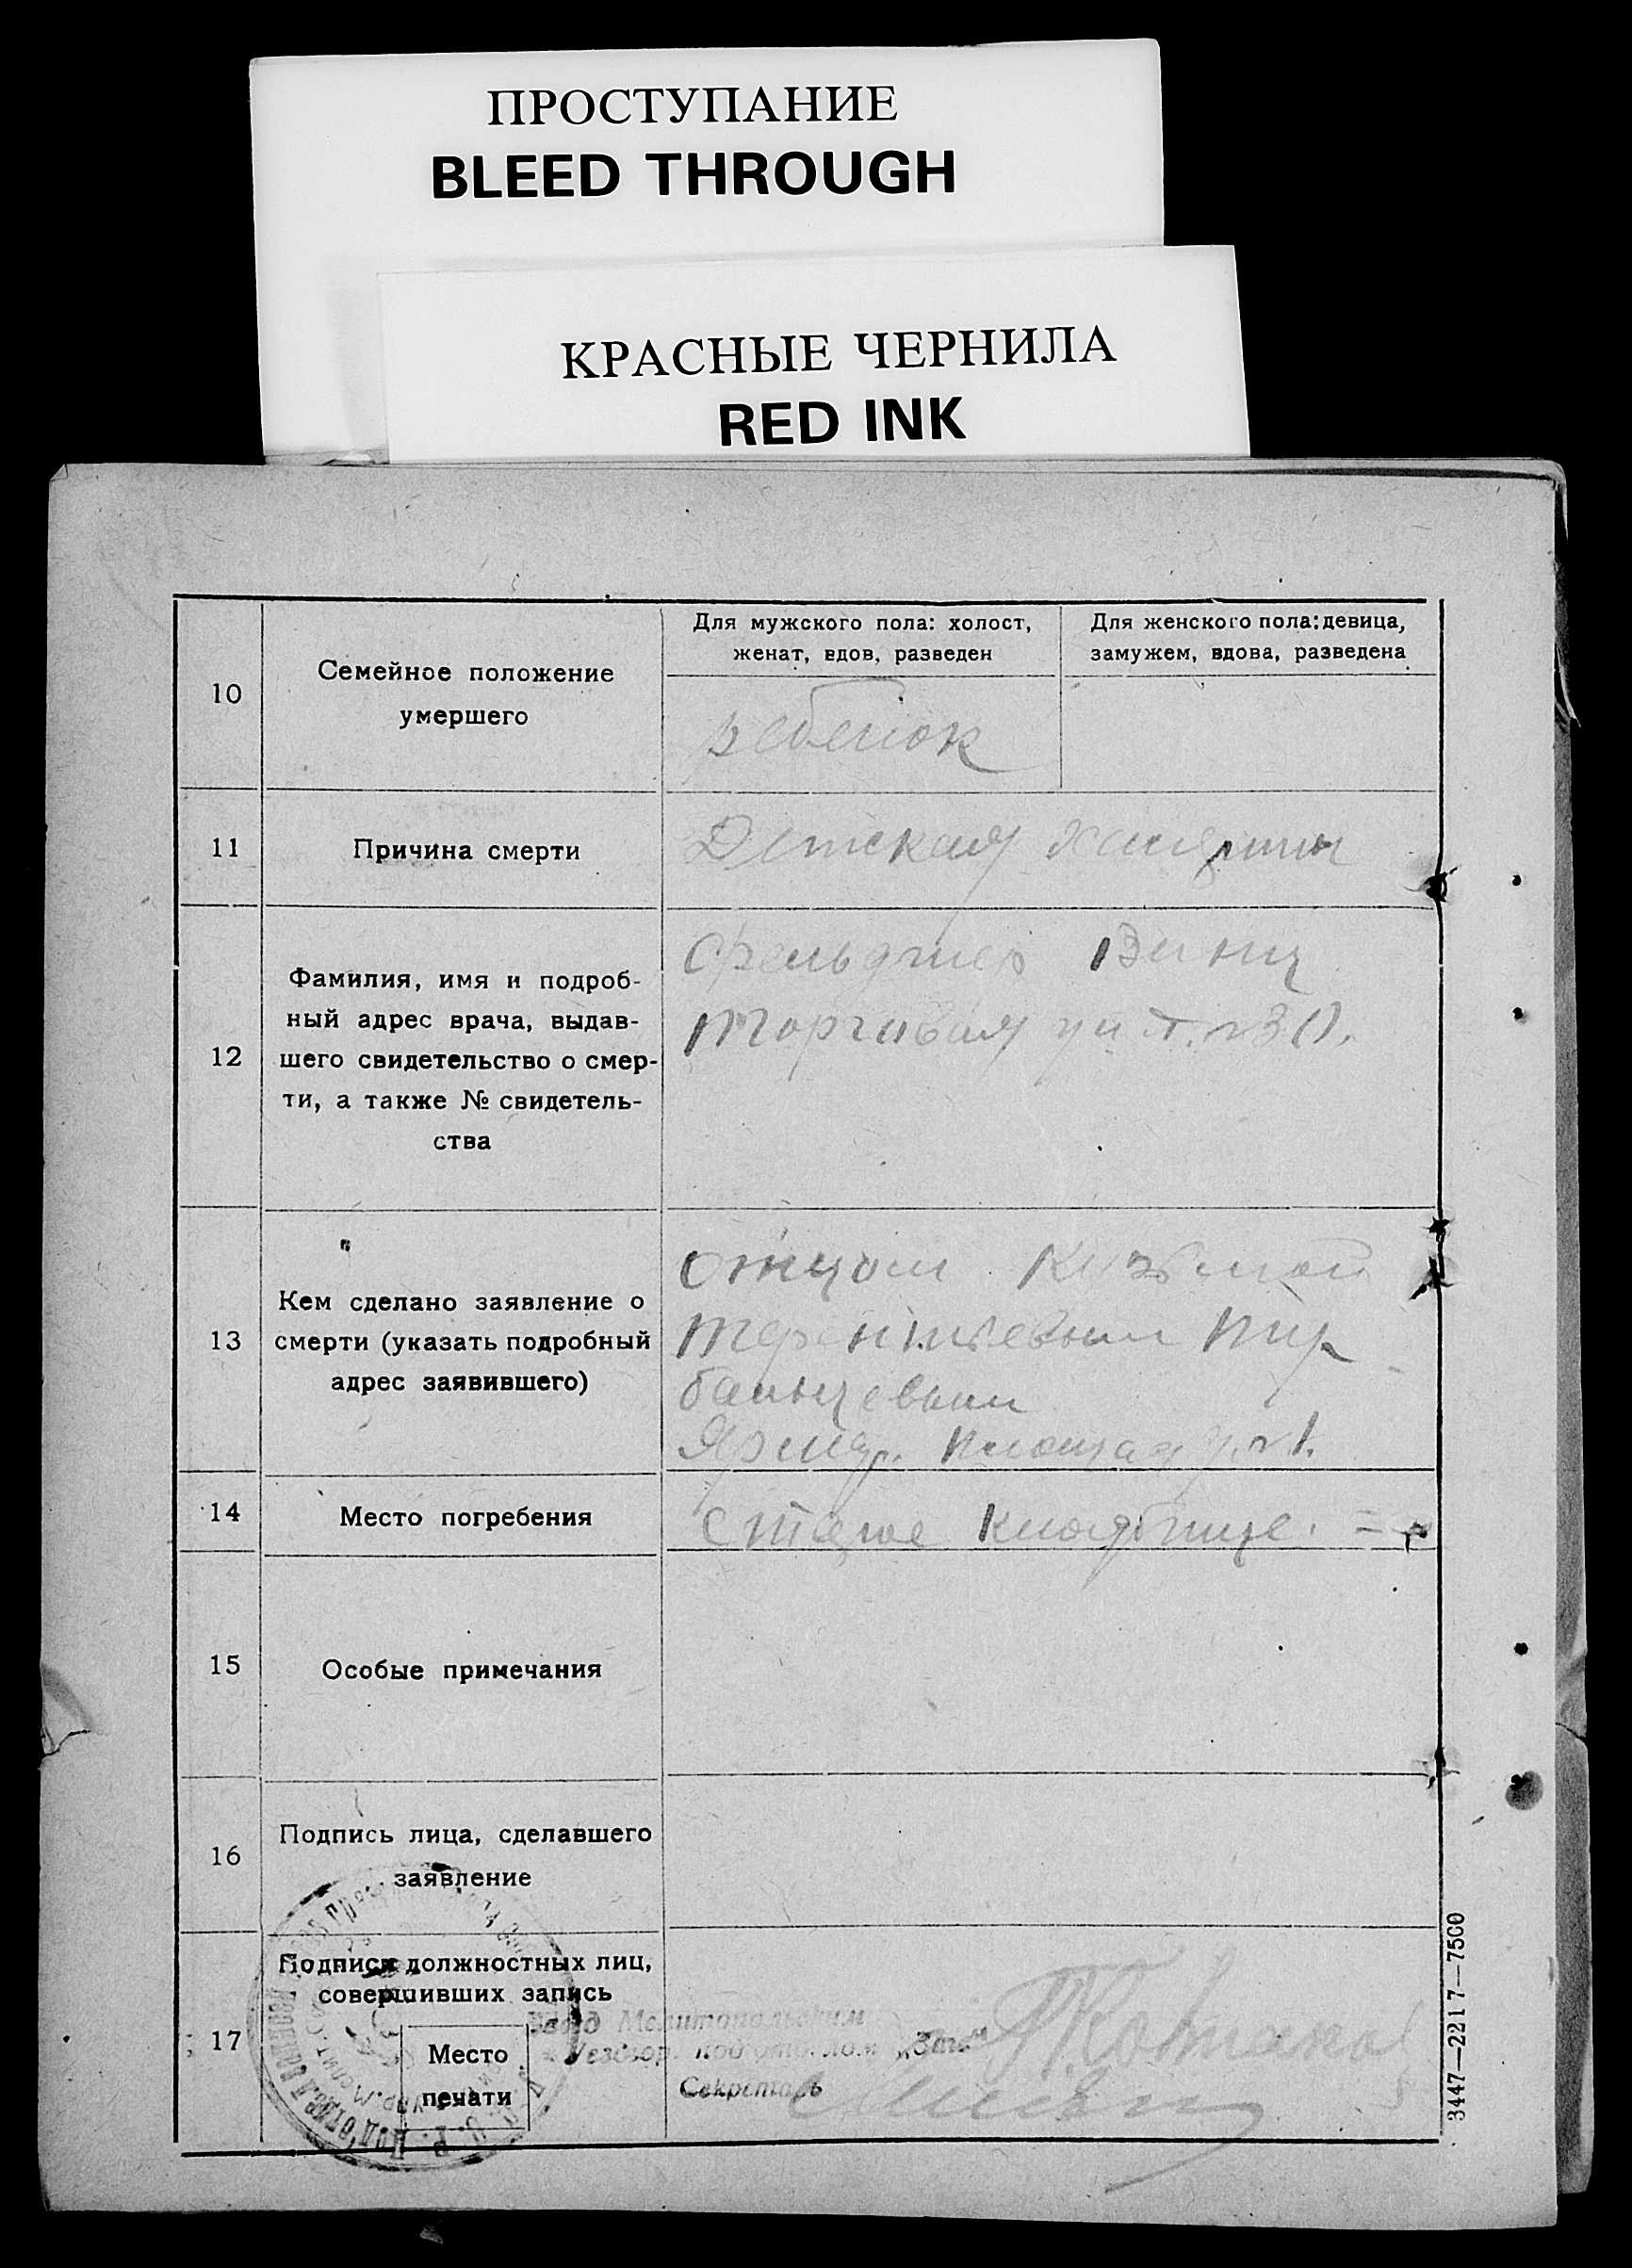 ПРОСТУПАНИЕ
BLEED THROUGH
КРАСНЫЕ ЧЕРНИЛА
RED INK
10
Семейное положение
умершего
Для мужского пола: холост,
женат, вдов, разведен
Для женского пола: девица,
замужем, вдова, разведена
ребенок
11
Причина смерти
Детская
12
Фамилия, имя и подроб-
ный адрес врача, выдав-
шего свидетельство о смер-
ти, а также № свидетель-
ства
Фельдшер Винц
Торговая ул.
13
Кем сделано заявление о
смерти (указать подробный
адрес заявившего)
отцом Кузьмой
Терентьевым
Площад
14
Место погребения
Старое кладбище
15
Особые примечания
16
Подпись лица, сделавшего
заявление
17
Подписи должностных лиц,
совершивших запись
Место
печати
Завед Мелитопольским
под'отделом „Загс“
Секретарь
3447—2217—7500